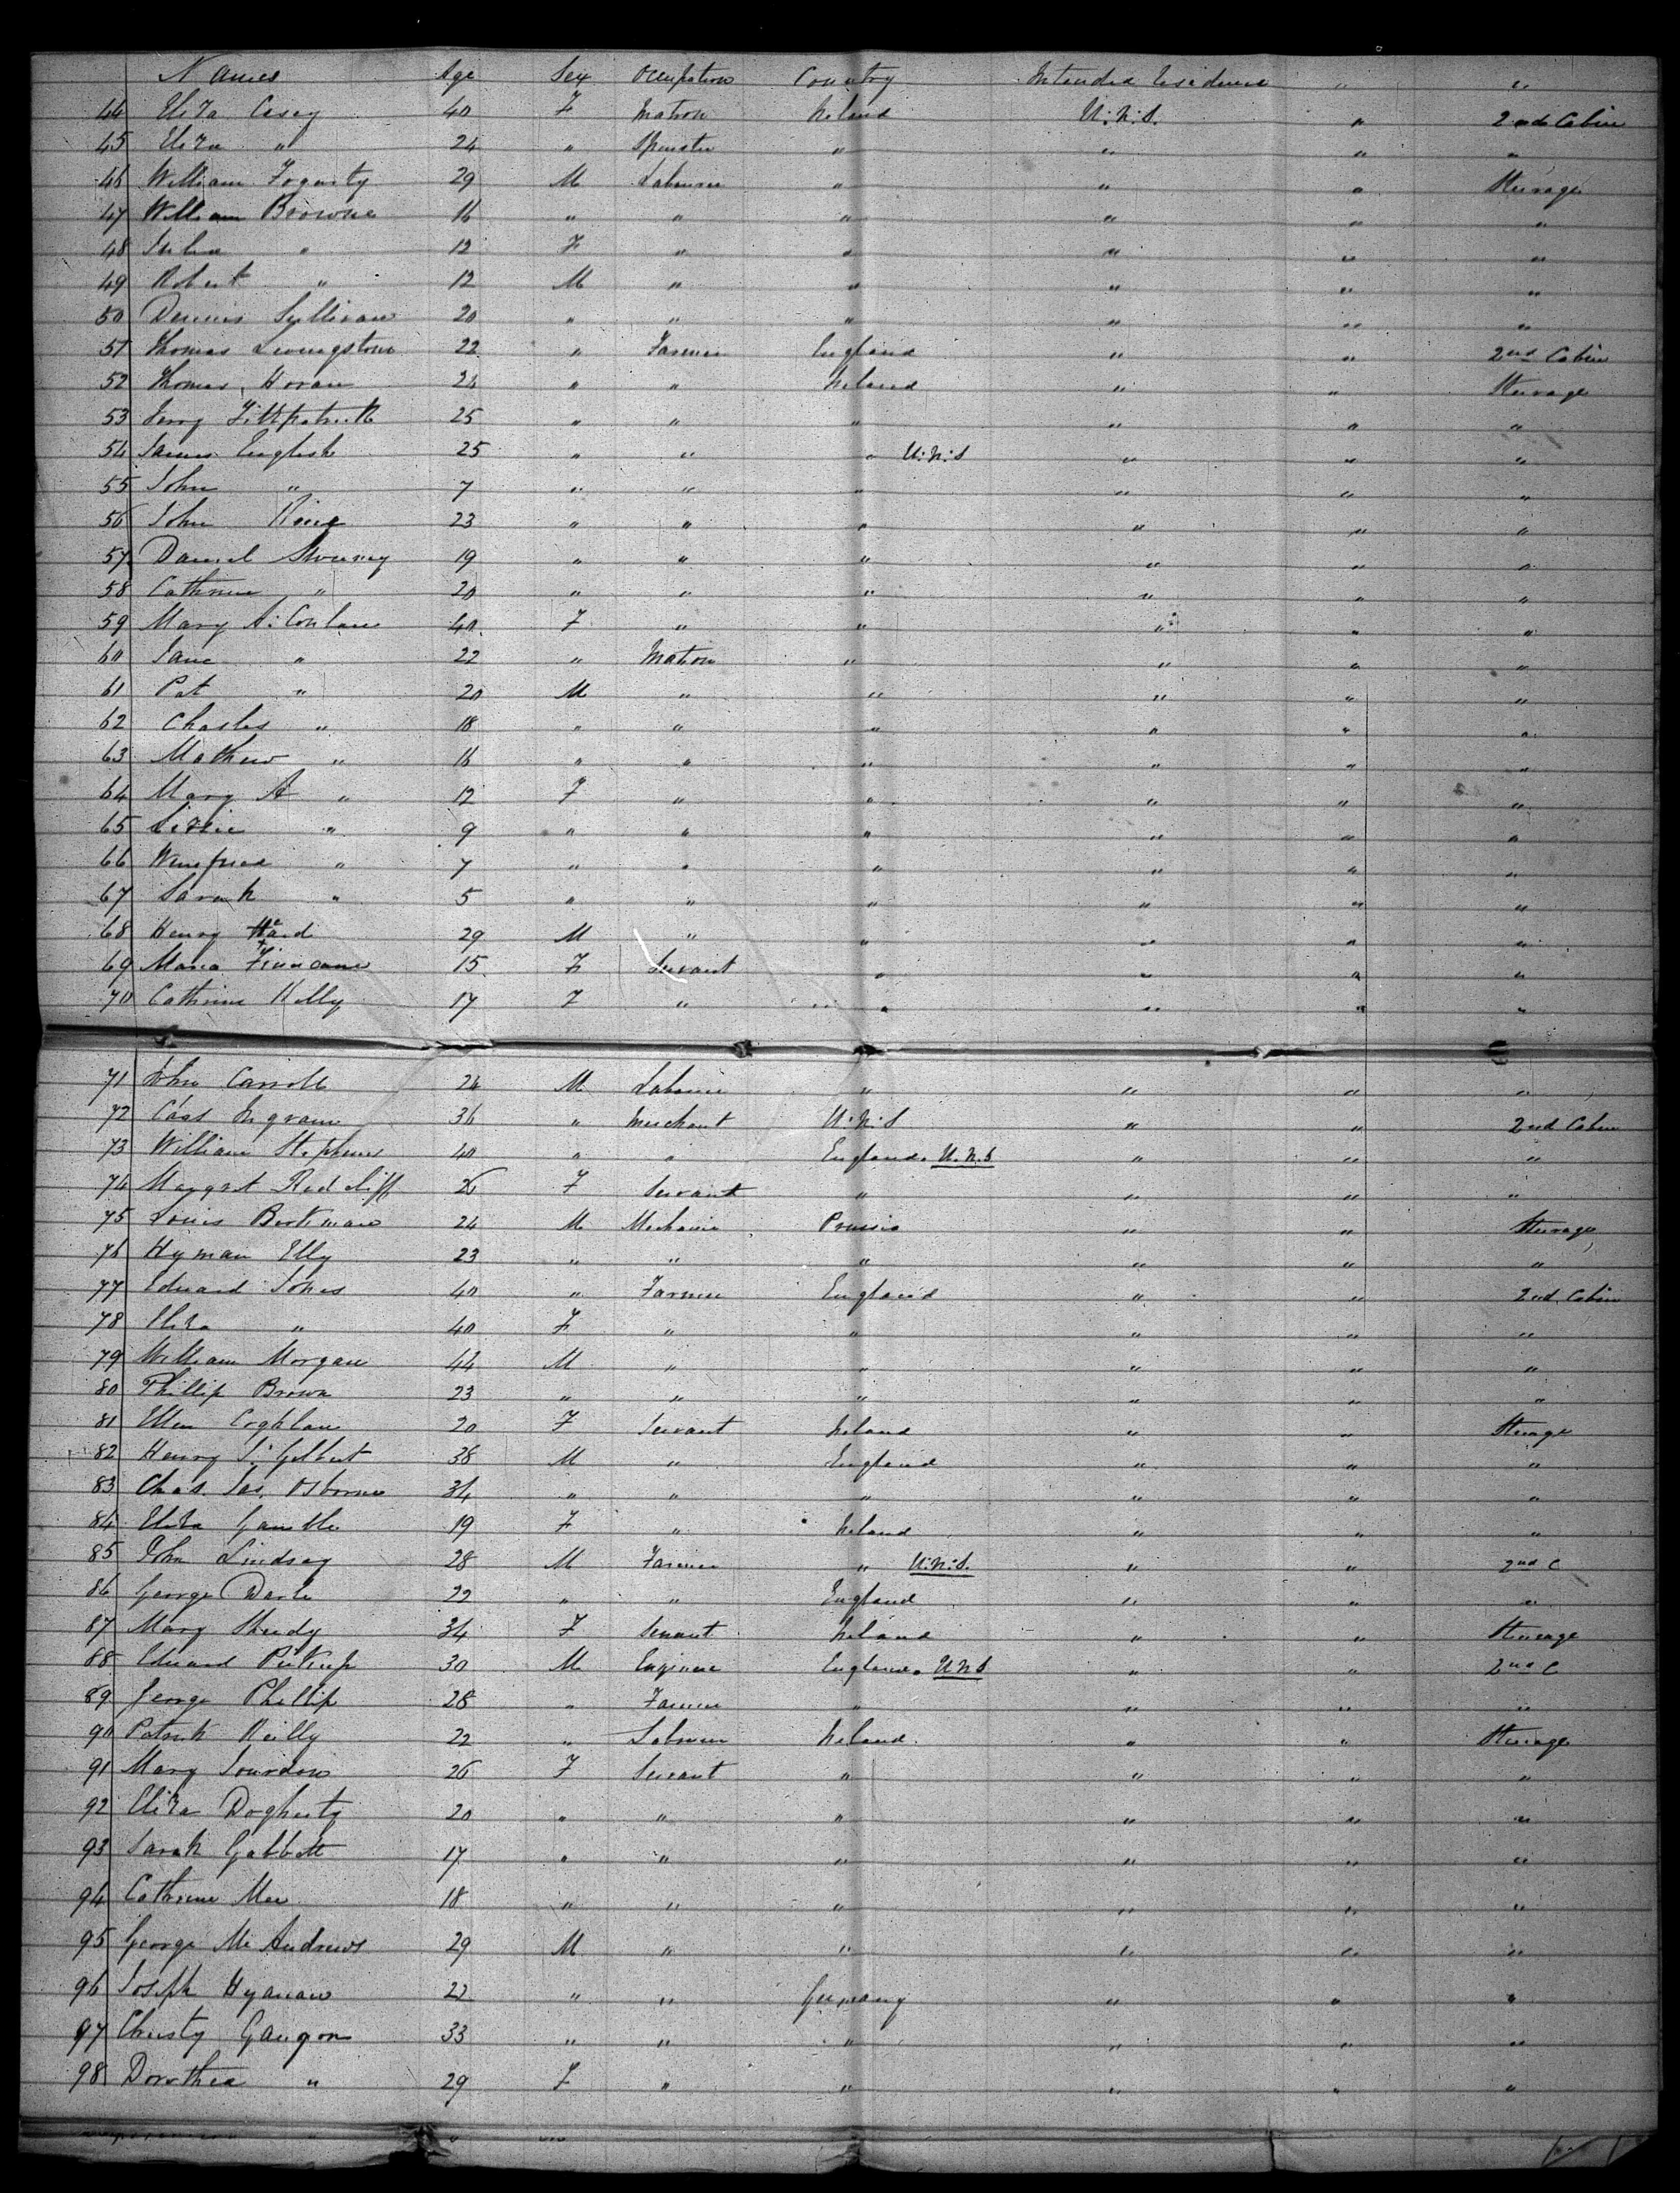 Names Age Sex Occupation Country Intended Residence " "
44 Eliza Casey 40 F Matron Ireland U.N.S. " 2nd Cabin
45 Eliza " 24 " Spinster " " " "
46 William Fogarty 29 M Labourer " " " Steerage
47 William Browne 16 " " " " " "
48 " 12 F " " " " "
49 Robert " 12 M " " " " "
50 Dennis Syllivan 20 " " " " " "
51 Thomas Livingstone 22 " Farmer England " " 2nd Cabin
52 Thomas Horan 24 " " Ireland " " Steerage
53 Fittpatrick 25 " " " " " "
54 James English 25 " " " U.N.S " " "
55 John " 7 " " " " " "
56 John 23 " " " " " "
57 Daniel Sweeney 19 " " " " " "
58 Cathrine " 20 " " " " " "
59 Mary A. Conlan 40 F " " " " "
60 Jane " 22 " Matron " " " "
61 Pat " 20 M " " " " "
62 Charles " 18 " " " " " "
63 Mathew " 16 " " " " " "
64 Mary A " 12 F " " " " "
65 Lizzie " 9 " " " " " "
66 Winefried " 7 " " " " " "
67 Sarah " 5 " " " " " "
68 Henry 29 M " " " " "
69 Maria Finucane 15 F Servant " " " "
70 Cathrine Kelly 17 F " " " " "
71 John Carroll 24 M Labourer " " " "
72 Cass Ingram 36 " Merchant U.N.S " " 2nd Cabin
73 William Stephens 40 " " England. U.N.S " " "
74 Margret Radcliff 26 F Servant " " " "
75 Louis Berkman 24 M Mechanic Prussia " " Steerage
76 Hyman Elly 23 " " " " " "
77 Edward Jones 40 " Farmer England " " 2nd Cabin
78 Eliza " 40 F " " " " "
79 William Morgan 44 M " " " " "
80 Phillip Brown 23 " " " " " "
81 Ellen Coghlan 20 F Servant Ireland " " Steerage
82 Henry J. Gilbert 38 M " England " " "
83 Chas. Jas. Osborne 34 " " " " " "
84 Eliza Gamble 19 F " Ireland " " "
85 John Lindsay 28 M Farmer " U.N.S. " " 2nd C
86 George 22 " " England " " "
87 Mary Sheedy 34 F Servant Ireland " " Steerage
88 Edward Pickup 30 M Engineer England. U.N.S " " 2nd C
89 George Phillip 28 " Farmer " " " "
90 Patrick Reilly 22 " Labourer Ireland " " Steerage
91 Mary 26 F Servant " " " "
92 Eliza Dogherty 20 " " " " " "
93 Sarah Gabbett 17 " " " " " "
94 Cathrine Mee 18 " " " " " "
95 George McAndrews 29 M " " " " "
96 Joseph Hyman 22 " " Germany " " "
97 Christy Gaugon 33 " " " " " "
98 Dorothea " 29 F " " " " "